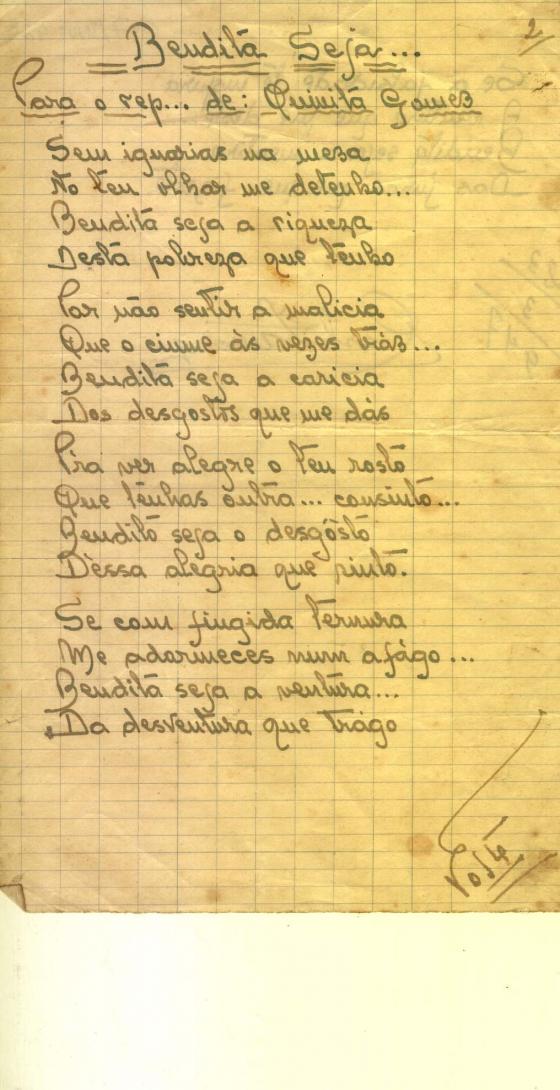 2/
Bendita Seja...
Para o rep... de: Quinita Gomez
Sem iguarias na meza
No teu olhar me detenho...
Bendita seja a riqueza
Desta pobreza que tenho
Por não sentir a malicia
Que o ciume às vezes tráz...
Bendita seja a caricia
Dos desgostos que me dás
P'ra ver alegre o teu rosto
Que tenhas outra... consinto...
Bendito seja o desgôsto
Dessa alegria que sinto.
Se com fingida ternura
Me adormeces num afágo...
Bendita seja a ventura...
Da desventura que trágo